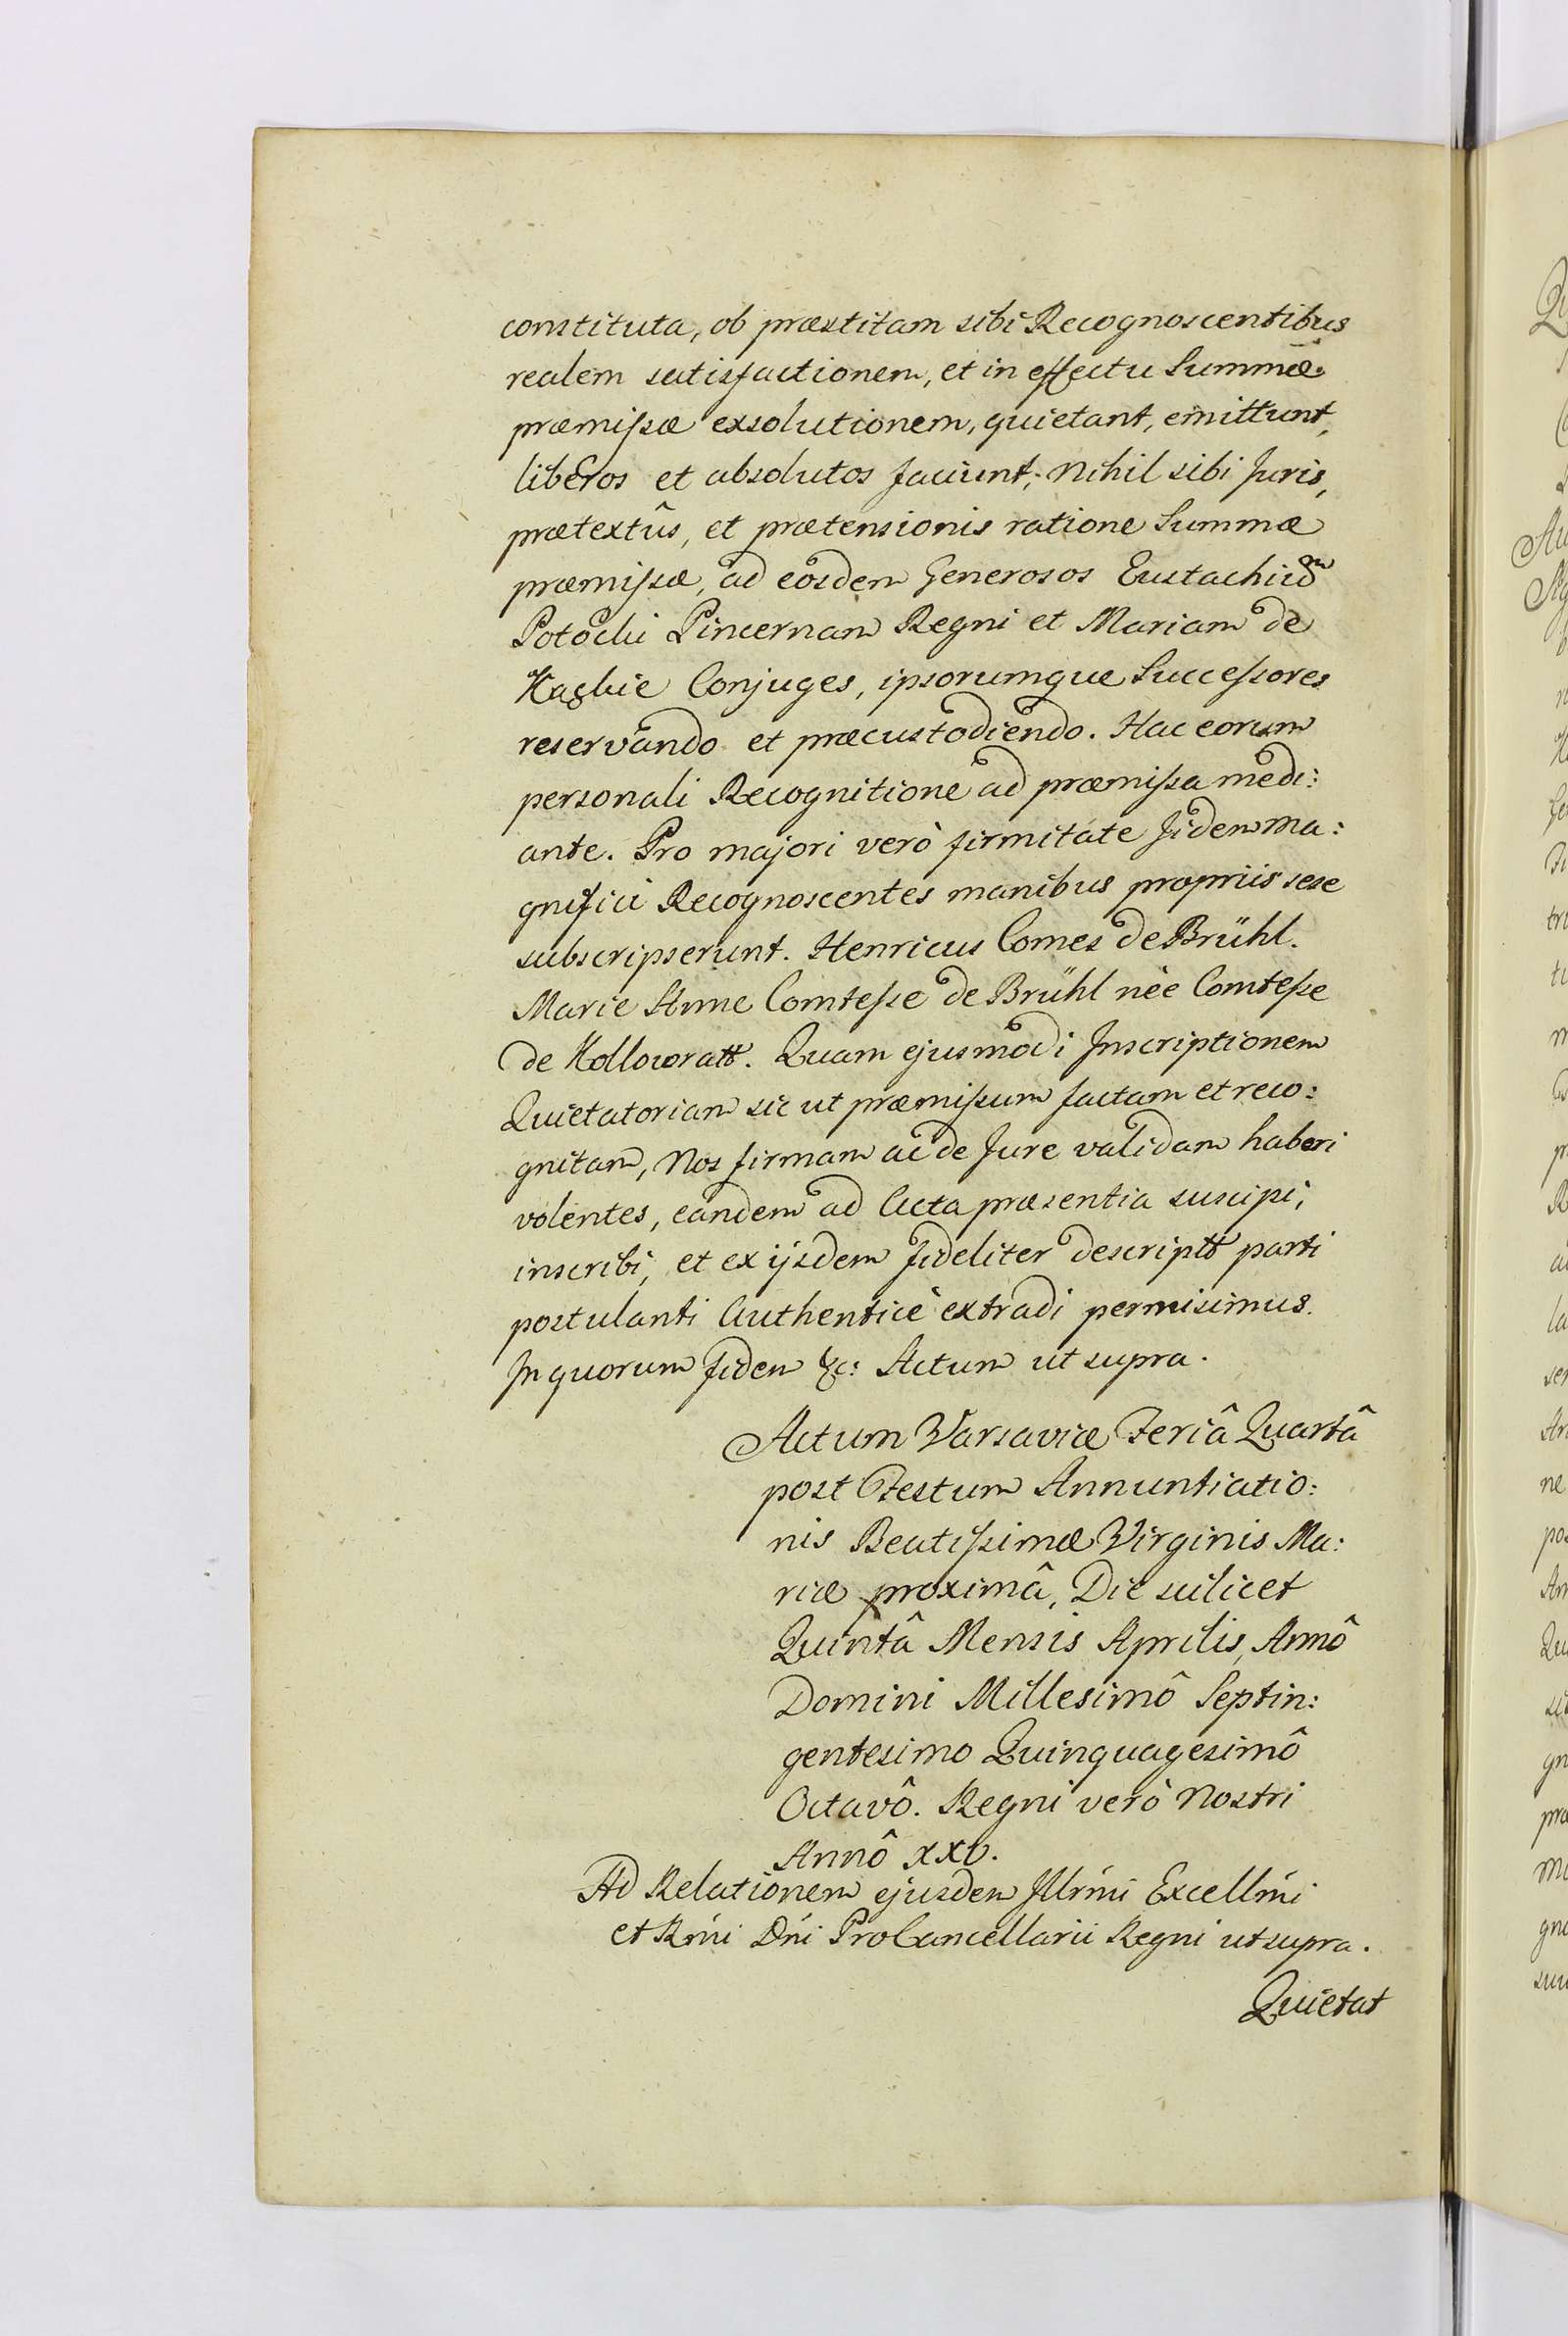 constituta, ob præstitam sibi Recognoscentibus
realem satisfactionem, et in effectu Summæ
præmissæ exsolutionem, quietant, emittunt,
liberos et absolutos faciunt; Nihil sibi Juris,
prætextûs, et prætensionis ratione Summæ
præmissæ, ad eosdem Generosos Eustachium
Potocki Pincernam Regni et Mariam de
Kąckie Conjuges, ipsorumque Successores
reservando et præcustodiendo. Hac eorum
personali Recognitione ad præmissa medi:
ante. Pro majori verò firmitate Jidem Ma:
gnifici Recognoscentes manibus propriis sese
subscripserunt. Henricus Comes de Brühl.
Marie Anne Comtesse de Brühl nèe Comtesse
de Kollowratt. Quam ejusmodi Inscriptionem
Quietatoriam sic ut præmissum factam et reco:
gnitam, Nos firmam ac de Jure validam haberi
volentes, eandem ad Acta præsentia suscipi,
inscribi, et ex ijsdem fideliter descriptt parti
postulanti Authenticè extradi permisimus.
In quorum fidem &c: Actum ut supra.
Actum Varsaviæ Feriâ Quartâ
post Festum Annuntiatio:
nis Beatissimæ Virginis Ma:
riæ proximâ, Die scilicet
Quintâ Mensis Aprilis, Annô
Domini Millesimô Septin:
gentesimo Quinquagesimô
Octavô. Regni verò Nostri
Annô XXV.
Ad Relationem ejusdem Illrmi Excellmi
et Rmi Dni ProCancellarii Regni ut supra.
Quietat